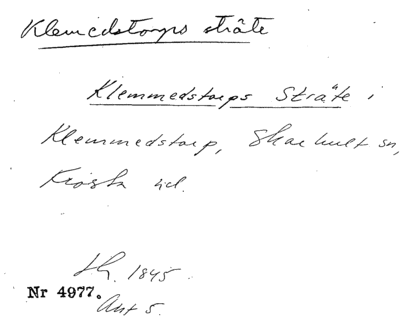 Klemedstorps sträte
Klemmedstorps Sträte i
Klemmedstorp, Skarhult sn,
Frosta hd.
1845
Nr 4977.
Ant 5.